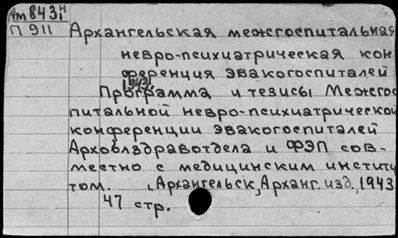 Ам843,н
П911
Архангельская межгоспитальная
невро-психиатрическая кон
ференция эвакогоспиталей
1943
Программа и тезисы Межгос
питальной невро-психиатрической
конференции эвакогоспиталей
Архоблздравотдела и ФЭП сов-
местно с медицинским институ
том. Архангельск, Арханг. изд, 1943
47 стр.